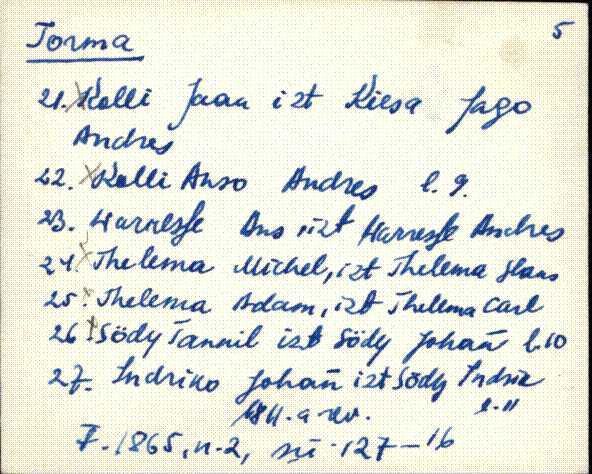 Torma 5
21. Kolli Jaan izt Kiesa Jago
Andres
22. Kolli Anso Andres l. 9.
23. Harraste Ans, izt Harraste Andres
24. Thelema Michel, izt Thelema Hans
25. Thelema Adam, izt Thelema Carl
26. Södy Tannil izt Södy Johañ l. 10
27. Indriko Johañ izt Södy Indrik
l. 11
1811. a rev.
F. 1865, n. 2, sü. 127-16